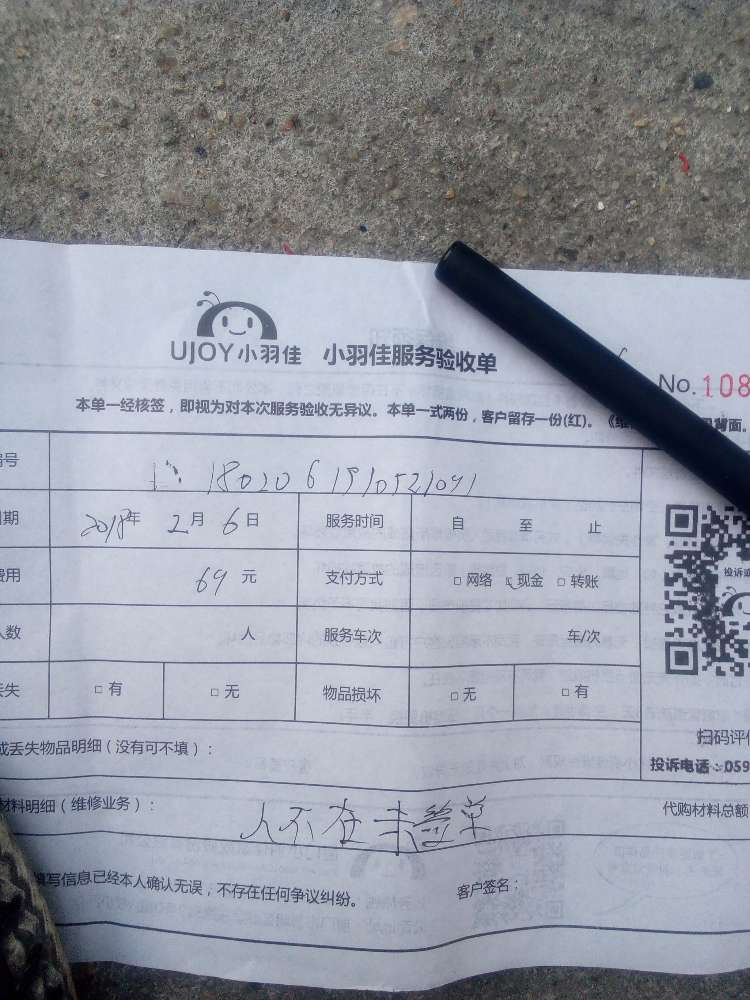 UJOY小羽佳 小羽佳服务验收单
No. 108
本单一经核签，即视为对本次服务验收无异议。本单一式两份，客户留存一份(红)。
背面。
号
期 2018年 2月 6日 服务时间 自 至 止
费用 69元 支付方式 □网络 现金 □转账
人数 人 服务车次 车/次
丢失 □有 □无 物品损坏 □无 □有
投诉
扫码评
或丢失物品明细（没有可不填）：
投诉电话：059
材料明细（维修业务）： 代购材料总额
人不在未签单
填写信息已经本人确认无误，不存在任何争议纠纷。 客户签名：